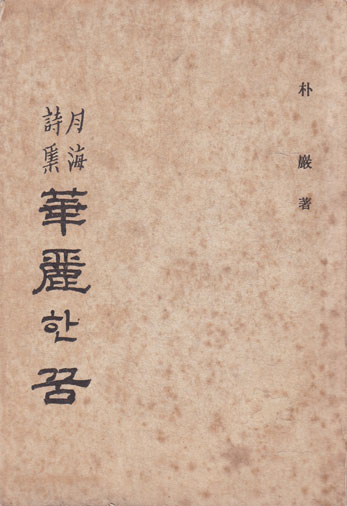 朴巖著
月海
詩集
華麗한꿈